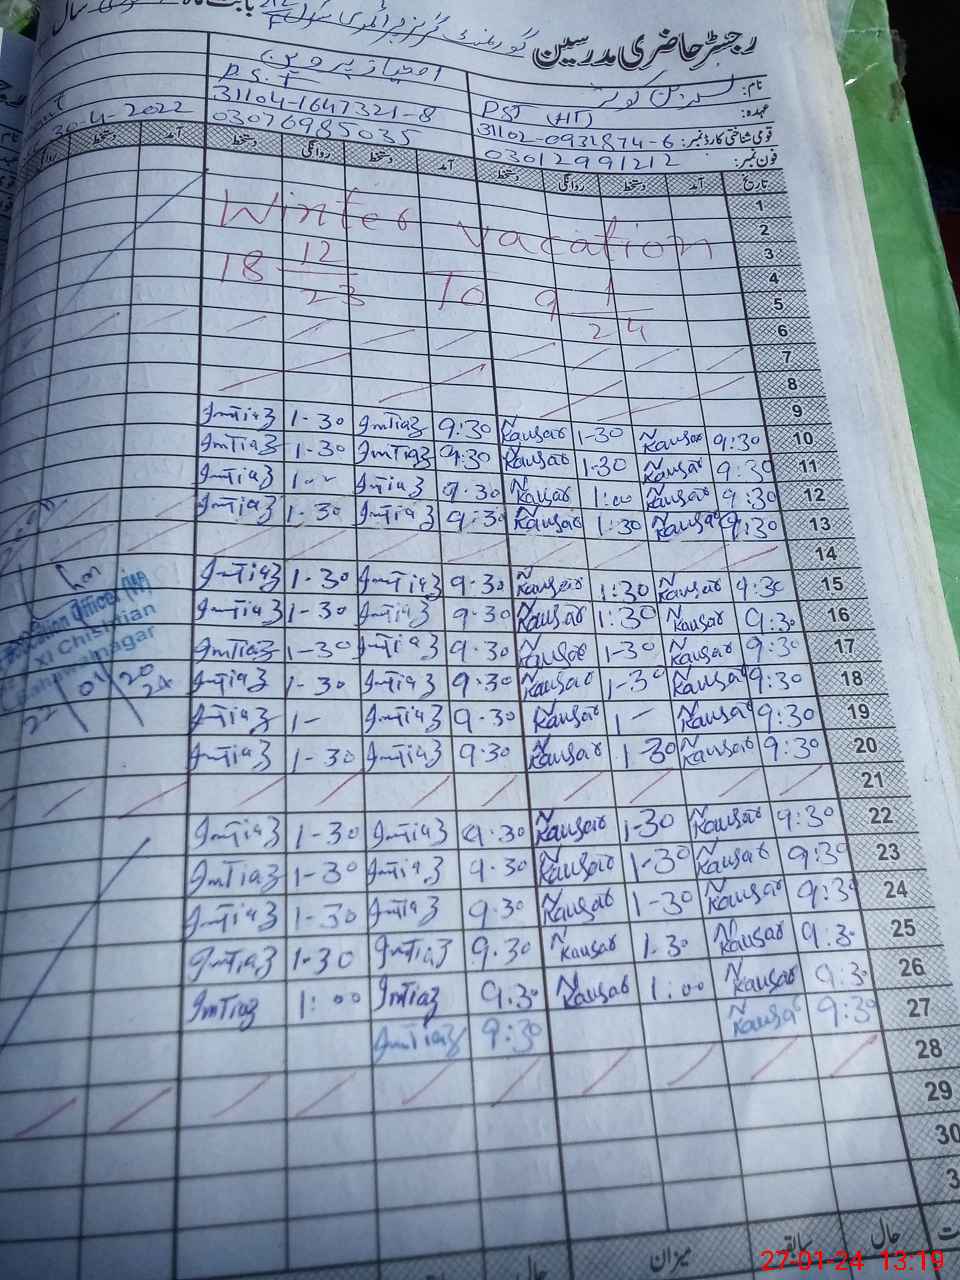 رجسٹر حاضری مدرسین
نام:
عہدہ: PST (HT)
قومی شناختی کارڈ نمبر: 31102-0931874-6
فون نمبر: 03012991212
امتیاز پروین
P.S.T
31104-1647321-8
03076985035
30-4-2022
تاریخ آمد دستخط روانگی دستخط آمد دستخط روانگی دستخط آمد دستخط
1
2
3
4
5
6
7
8
Winter vacation
18 12/23 To 9 1/24
9
Imtiaz 1-30 Imtiaz 9:30 Kausar 1-30 Kausar 9:30 10
Imtiaz 1-30 Imtiaz 9:30 Kausar 1-30 Kausar 9:30 11
Imtiaz 1-- Imtiaz 9.30 Kausar 1:00 Kausar 9:30 12
Imtiaz 1-30 Imtiaz 9:30 Kausar 1:30 Kausar 9:30 13
14
Imtiaz 1-30 Imtiaz 9.30 Kausar 1:30 Kausar 9:30 15
Imtiaz 1-30 Imtiaz 9.30 Kausar 1:30 Kausar 9:30 16
Imtiaz 1-30 Imtiaz 9.30 Kausar 1-30 Kausar 9:30 17
Imtiaz 1-30 Imtiaz 9.30 Kausar 1-30 Kausar 9:30 18
Imtiaz 1- Imtiaz 9.30 Kausar 1- Kausar 9:30 19
Imtiaz 1-30 Imtiaz 9.30 Kausar 1-30 Kausar 9:30 20
21
Imtiaz 1-30 Imtiaz 9.30 Kausar 1-30 Kausar 9:30 22
Imtiaz 1-30 Imtiaz 9.30 Kausar 1-30 Kausar 9:30 23
Imtiaz 1-30 Imtiaz 9.30 Kausar 1-30 Kausar 9:30 24
Imtiaz 1-30 Imtiaz 9.30 Kausar 1.30 Kausar 9:30 25
Imtiaz 1:00 Imtiaz 9.30 Kausar 1:00 Kausar 9:30 26
Imtiaz 9:30 Kausar 9:30 27
28
29
30
3
Education Officer (W)
XI Chishtian
Bahawalnagar
22/01/2024
حال سابقہ میزان حال
27-01-24 13:19